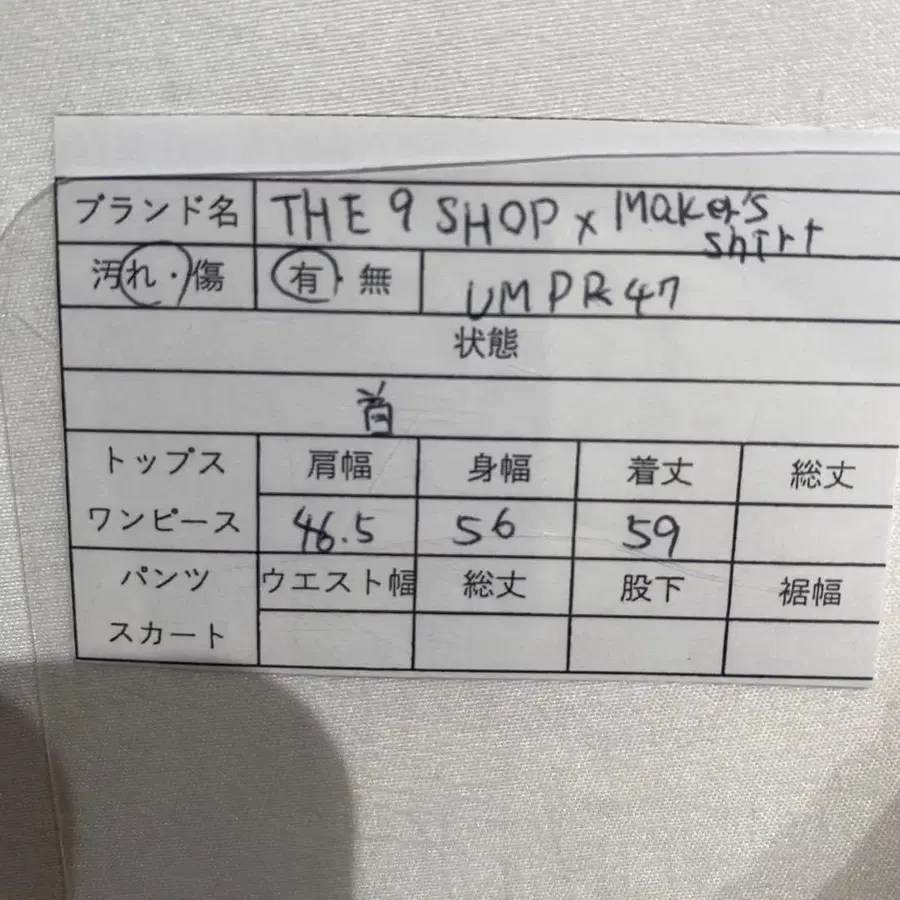 ブランド名 THE 9 SHOP x Maker's shirt
汚れ・傷 有・無 UMPR47
状態
首
トップス 肩幅 身幅 着丈 総丈
ワンピース 46.5 56 59
パンツ ウエスト幅 総丈 股下 裾幅
スカート